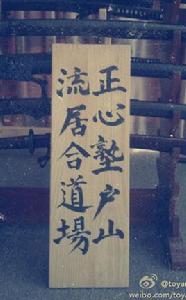 正心塾戸山
流居合道場
@toya
weibo.com/toya